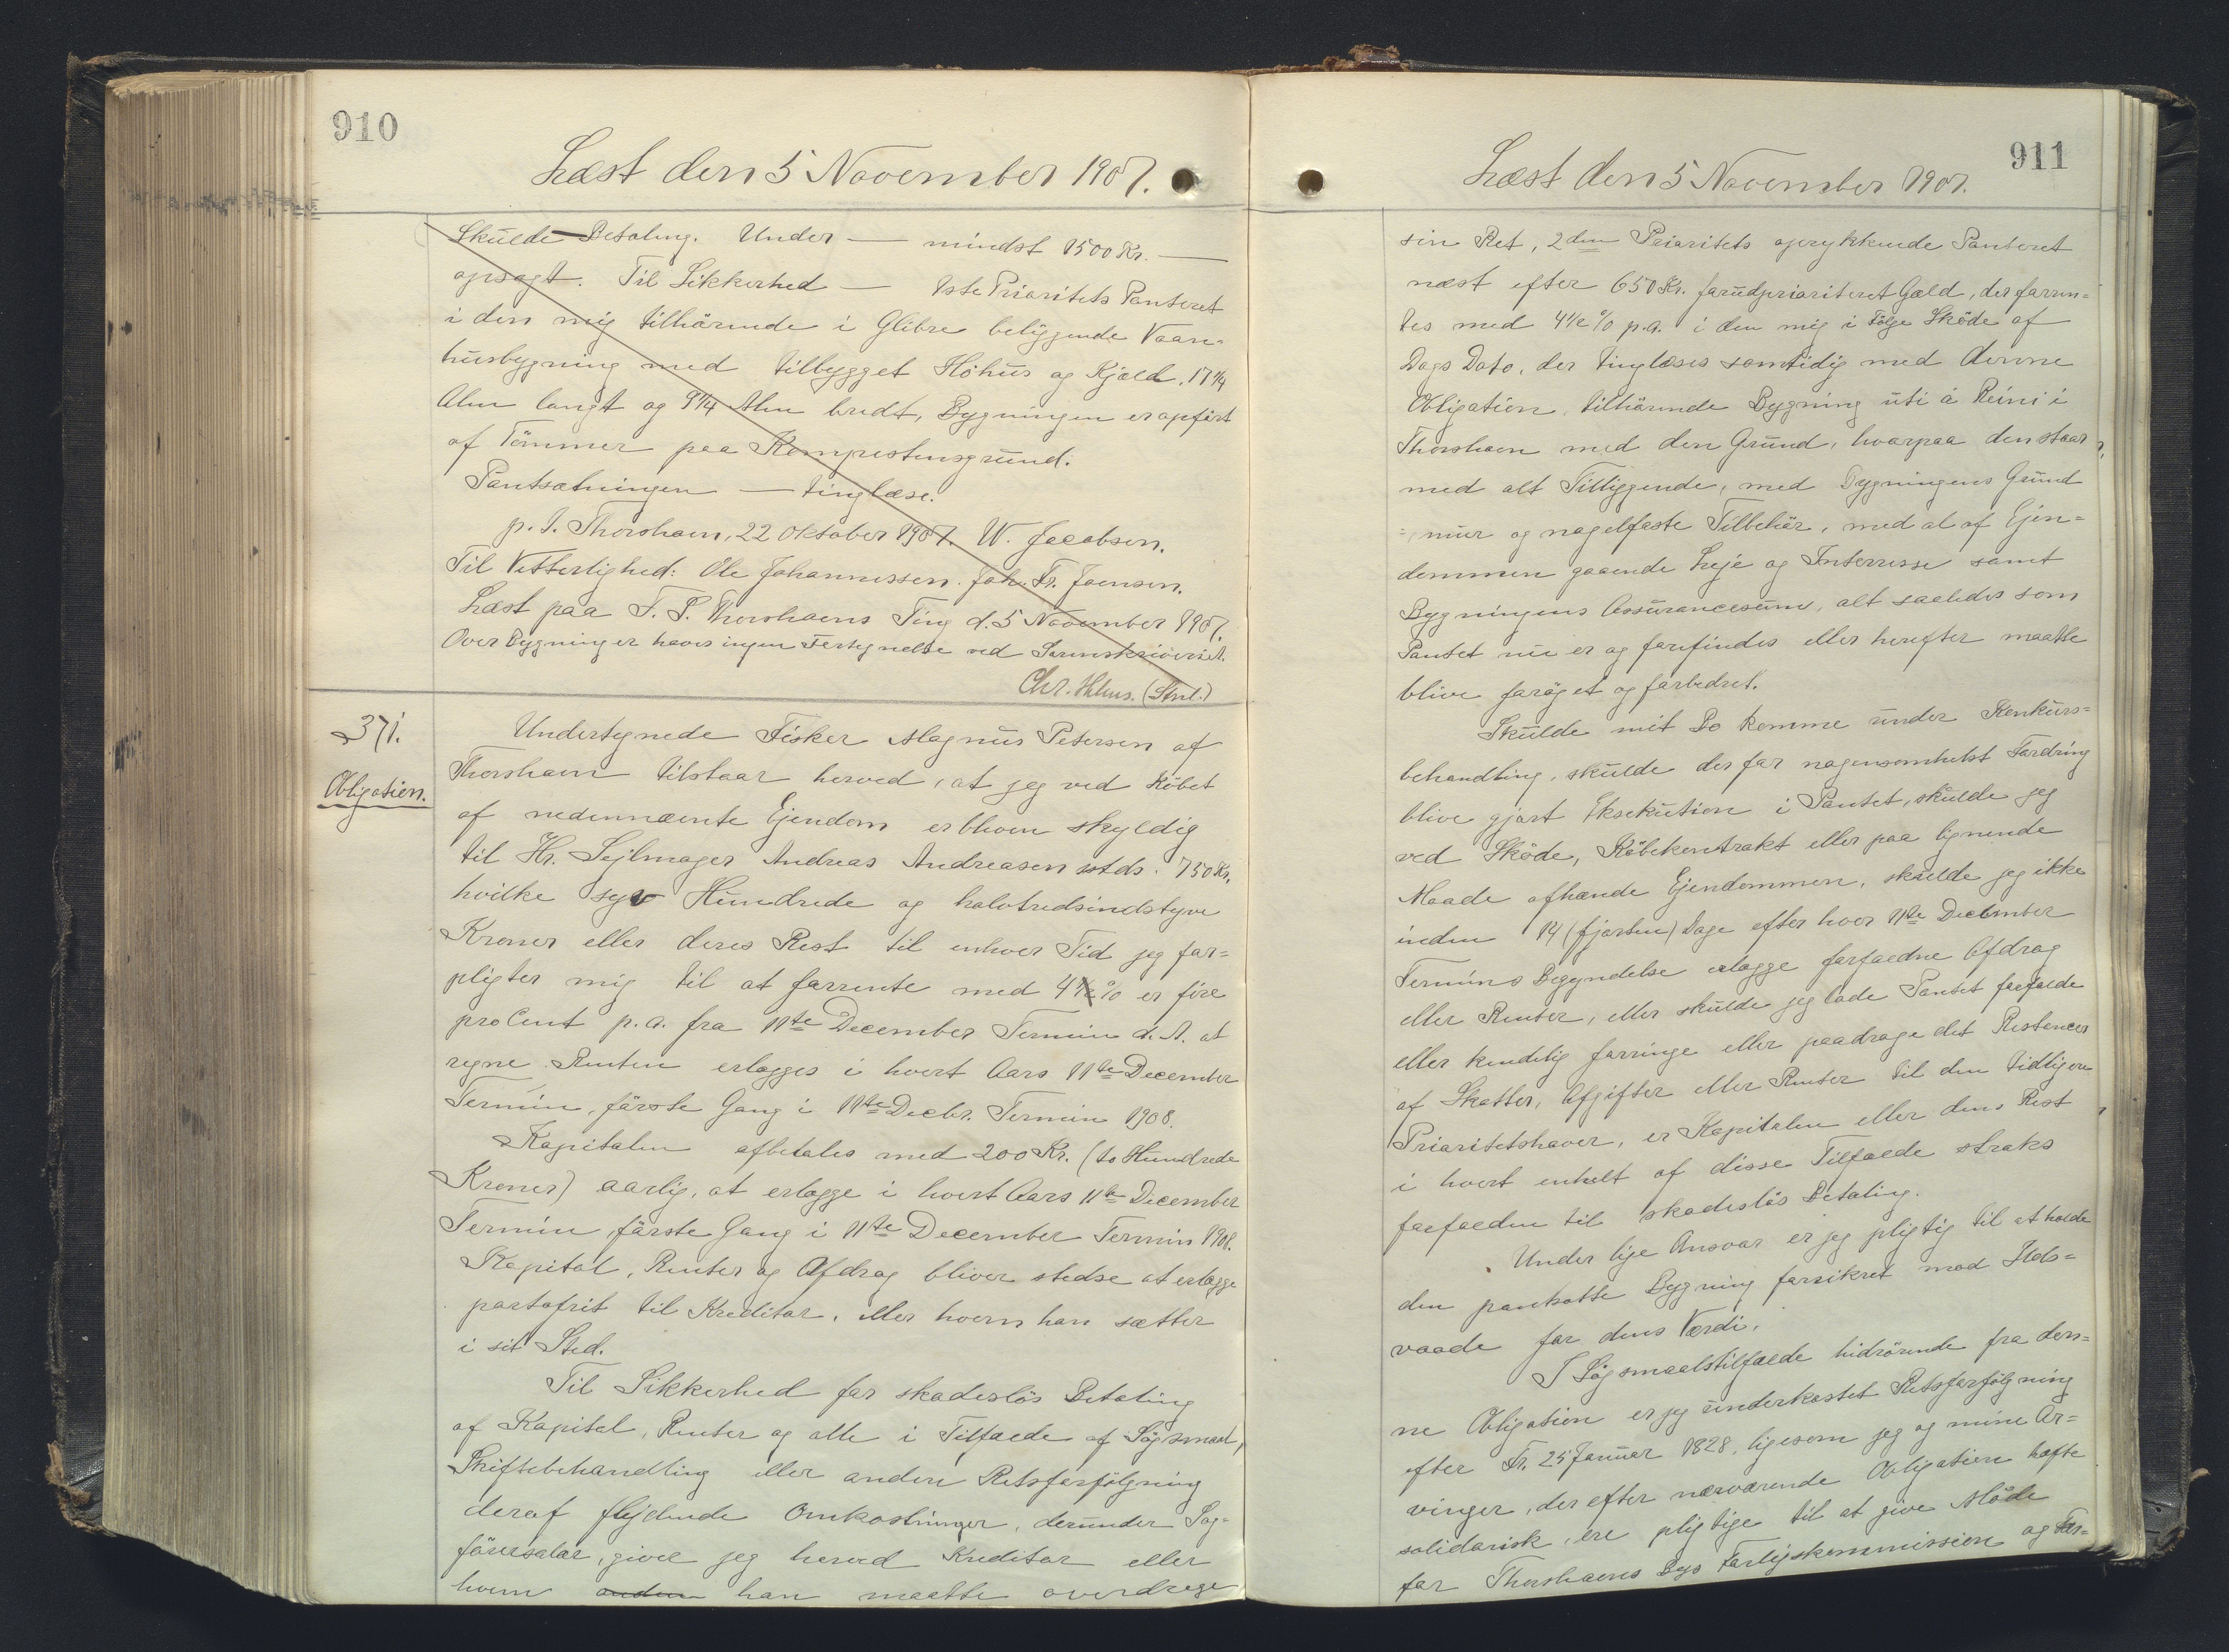 910
Læst den 5 November 1907.
Skulde Betaling. Under — mindst 1500 Kr. —
opsagt. Til Sikkerhed — 1ste Prioritets Panteret
i den mig tilhörende i Glibre beliggende Vaan-
husbygning med tilbygget Höhus og Kjæld, 17 1/4
Alen langt og 9 1/4 Alen bredt, Bygningen er opfört
af Tömmer paa Kampestensgrund.
Pantsætningen — tinglæse.
p. t. Thorshavn, 22 Oktober 1907. W. Jacobsen.
Til Vitterlighed: Ole Johannessen. Joh. Fr. Joensen.
Læst paa F. S. Thorshavns Ting d. 5 November 1907.
Over Bygninger haves ingen Fortegnelse ved Sorenskriveriet.
Chr. (Stnl.)
371.
Obligation.
Undertegnede Fisker Magnus Petersen af
Thorshavn tilstaar herved, at jeg ved Köbet
af nedennævnte Ejendom er bleven skyldig
til Hr. Sejlmager Andreas Andreasen sstds. 750 Kr.,
hvilke syv Hundrede og halvtredsindstyve
Kroner eller deres Rest til enhver Tid jeg for=
pligter mig til at forrente med 4 % er fire
pro Cent p. a. fra 11te December Termin d. A. at
regne. Renten erlægges i hvert Aars 11te December
Termin, förste Gang i 11te Decbr. Termin 1908.
Kapitalen afbetales med 200 Kr. (to Hundrede
Kroner) aarlig, at erlægge i hvert Aars 11te December
Termin, förste Gang i 11te December Termin 1908.
Kapital, Renter og Afdrag bliver stedse at erlægge
portofrit til Kreditor, eller hvem han sætter
i sit Sted.
Til Sikkerhed for skadeslös Betaling
af Kapital, Renter og alle i Tilfælde af Sögsmaal,
Skiftebehandling eller anden Retsforfölgning
deraf flydende Omkostninger, derunder Sag=
förersalær, giver jeg herved Kreditor eller
hvem anden han maatte overdrage
911
Læst den 5 November 1907.
sin Ret, 2den Prioritets oprykkende Panteret
næst efter 650 Kr. forudprioriteret Gæld, der forren=
tes med 4 1/2 % p. a. i den mig i Fölge Sköde af
Dags Dato, der tinglæses samtidig med denne
Obligation, tilhörende Bygning uti á Reini i
Thorshavn med den Grund, hvorpaa den staar,
med alt Tilliggende, med Bygningens Grund
=mur og nagelfaste Tilbehör, med al af Ejen=
dommen gaaende Leje og Interresse samt
Bygningens Assurancesum, alt saaledes som
Pantet nu er og forefindes eller herefter maatte
blive foröget og forbedret.
Skulde mit Bo komme under Konkurs=
behandling, skulde der for nogensomhelst Fordring
blive gjort Eksekution i Pantet, skulde jeg
ved Sköde, Köbekontrakt eller paa lignende
Maade afhænde Ejendommen, skulde jeg ikke
inden 14 (fjorten) Dage efter hver 11te December
Termins Begyndelse erlægge forfaldne Afdrag
eller Renter, eller skulde jeg lade Pantet forfalde
eller kendelig forringe eller paadrage det Restancer
af Skatter, Afgifter eller Renter til den tidligere
Prioritetshaver, er Kapitalen eller dens Rest
i hvert enkelt af disse Tilfælde straks
forfalden til skadeslös Betaling.
Under lige Ansvar er jeg pligtig til at holde
den pantsatte Bygning forsikret mod Ilds=
vaade for dens Værdi.
I Sögsmaalstilfælde hidrörende fra den=
ne Obligation er jeg underkastet Retsforfölgning
efter Fr. 25 Januar 1828, ligesom jeg og mine Ar=
vinger, der efter nærværende Obligation hæfte
solidarisk, ere pligtige til at give Möde
for Thorshavns Bys Forligskommission og For=